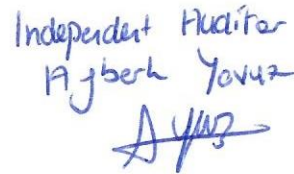 Independent Auditor
Ayberk Yavuz